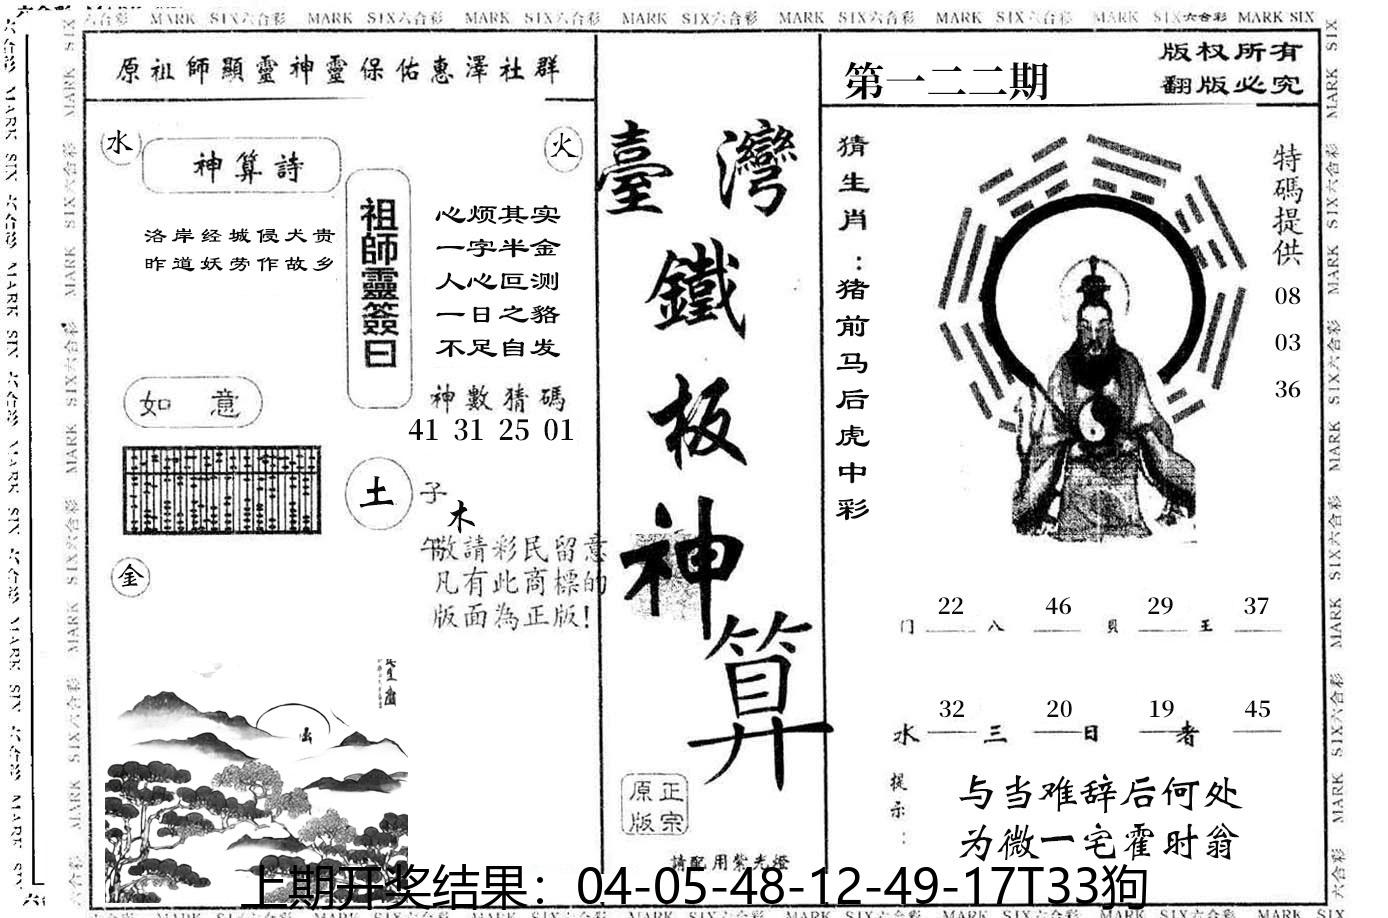 原祖師顯靈神靈保佑惠澤社群
水
神算詩
火
洛岸经城侵犬贵
昨道妖劳作故乡
祖師靈簽曰
心烦其实
一字半金
人心叵测
一日之貉
不足自发
神數猜碼
41 31 25 01
如 意
土
子
木
午
敬請彩民留意
凡有此商標的
版面為正版!
金
臺灣
鐵
板
神
算
正宗
原版
請配用紫光燈
第一二二期
版权所有
翻版必究
猜生肖：猪前马后虎中彩
特碼提供
08
03
36
门 22 八 46 貝 29 王 37
水 32 三 20 日 19 者 45
提示：
与当难辞后何处
为微一宅霍时翁
上期开奖结果：04-05-48-12-49-17T33狗
MARK SIX六合彩 MARK SIX六合彩 MARK SIX六合彩 MARK SIX六合彩 MARK SIX六合彩 MARK SIX六合彩 MARK SIX六合彩 MARK SIX